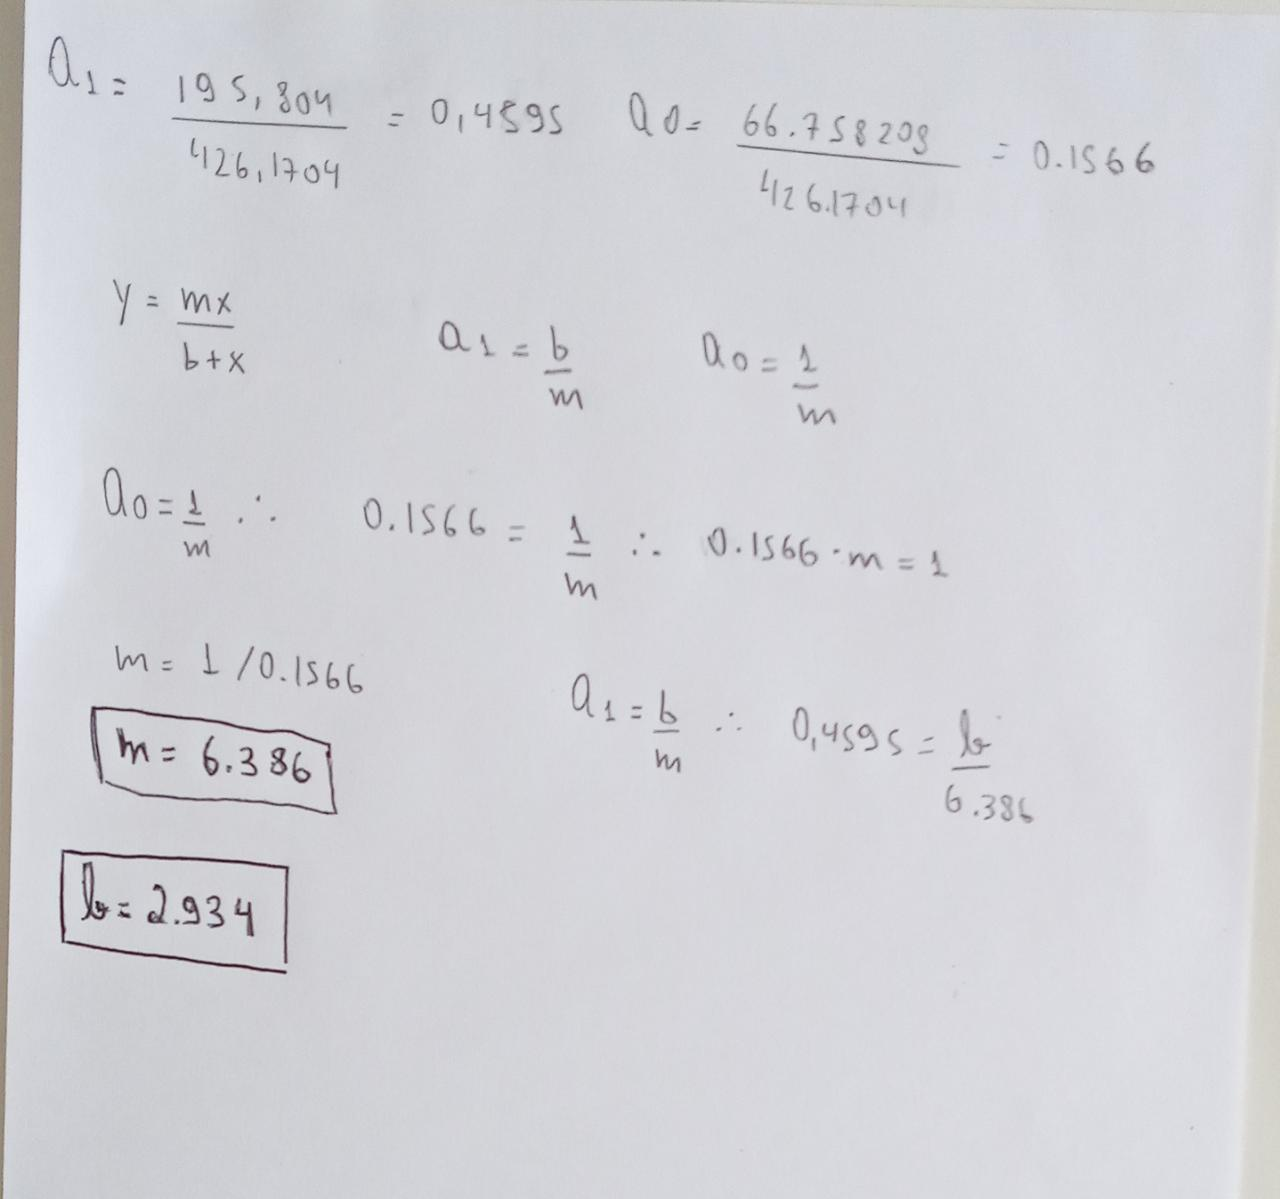 a1 = 195,804 / 426,1704 = 0,4595 a0 = 66.758209 / 426.1704 = 0.1566
y = mx / b+x a1 = b / m a0 = 1 / m
a0 = 1 / m ∴ 0.1566 = 1 / m ∴ 0.1566 · m = 1
m = 1 / 0.1566
a1 = b / m ∴ 0,4595 = b / 6.386
m = 6.386
b = 2.934